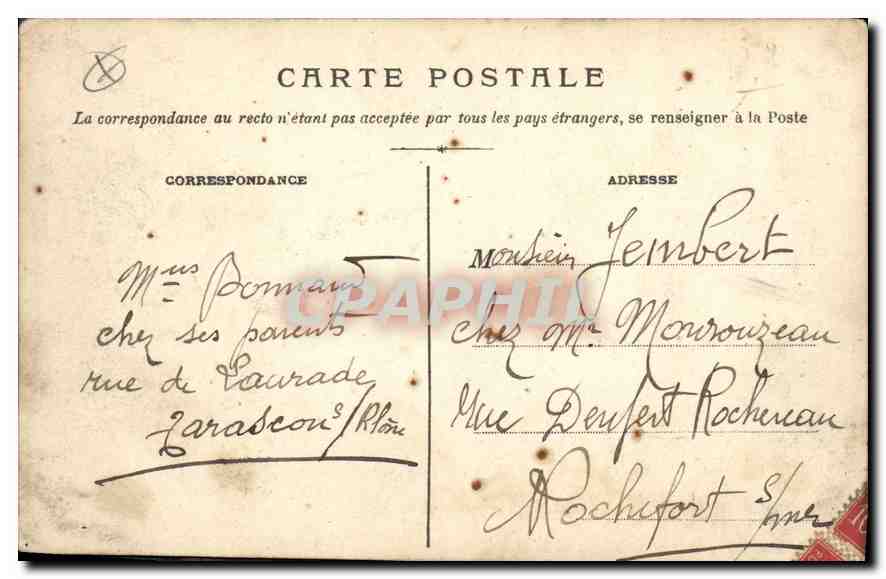 CARTE POSTALE
La correspondance au recto n'étant pas acceptée par tous les pays étrangers, se renseigner à la Poste
CORRESPONDANCE
Mus Bonnaud
chez ses parents
rue de Laurade
Tarascon s/ Rhône
ADRESSE
Monsieur Jembert
chez Mr Mourouzeau
Rue Denfert Rochereau
Rochefort s/mer
CPAPHIL